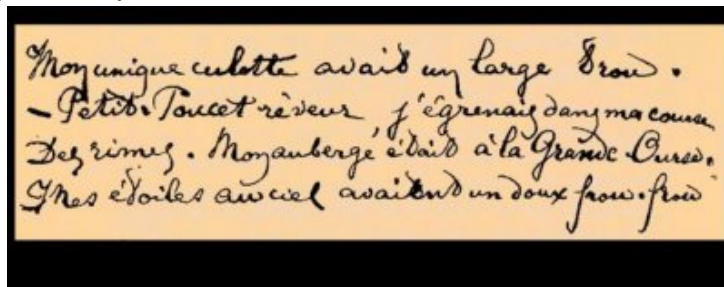 Mon unique culotte avait un large trou.
– Petit-Poucet rêveur, j'égrenais dans ma course
Des rimes. Mon auberge était à la Grande-Ourse.
– Mes étoiles au ciel avaient un doux frou-frou